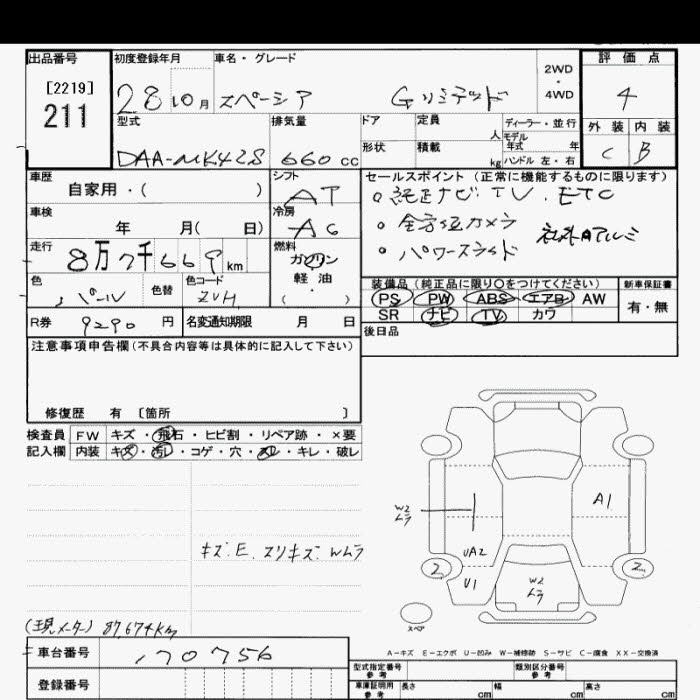 出品番号 初度登録年月 車名・グレード 2WD・4WD 評価点
[2219]
211 28 10月 スペーシア Gリミテッド 4
型式 排気量 ドア 定員 人 ディーラー・並行 外装 内装
モデル年式 年
形状 積載 kg ハンドル 左・右
DAA-MK42S 660cc C B
車歴 自家用・( ) シフト AT
セールスポイント(正常に機能するものに限ります)
。純正ナビ.TV.ETC
・全方位カメラ 社外アルミ
・パワースライド
車検 年 月( 日) 冷房 AC
走行 8万7千669km 燃料 ガソリン 軽油 ( ・ )
色 パール 色替 色コード ZVH
装備品(純正品に限り○をつけてください) 新車保証書
PS PW ABS エアB AW 有・無
SR ナビ TV カワ
R券 9290円 名変通知期限 月 日 後日品
注意事項申告欄(不具合内容等は具体的に記入して下さい)
修復歴 有 〔箇所 〕
検査員 FW キズ・飛石・ヒビ割・リペア跡・×要
記入欄 内装 キズ・汚レ・コゲ・穴・スレ・キレ・破レ
W2
ムラ
A1
キズ.E.スリキズ.Wムラ
UA2
2 U1 W2
ムラ 2
スペア
(現メーター) 87,674Km
A-キズ E-エクボ U-凹み W-補修跡 S-サビ C-腐食 XX-交換済
車台番号 170756
型式指定番号 参考 類別区分番号 参考
登録番号
車庫証明用 参考 長さ cm 幅 cm 高さ cm